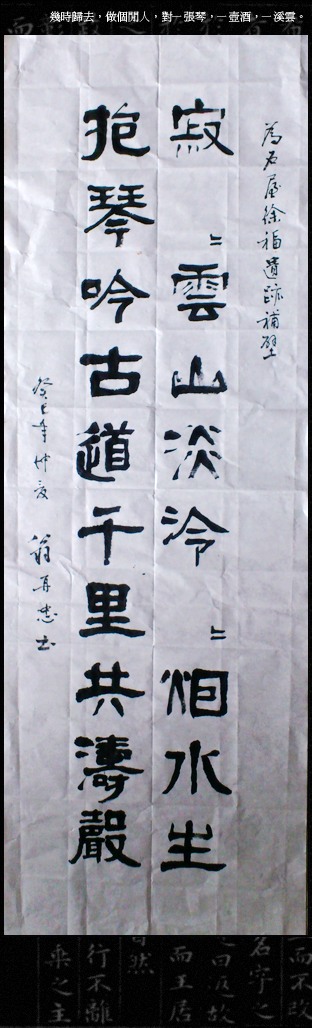 幾時歸去，做個閒人，對一張琴，一壺酒，一溪雲。
為石屋徐福遺跡補壁
寂〻雲山淡泠〻烟水生
抱琴吟古道千里共濤聲
癸巳年仲夏 翁再忠书
而不故
名字之
曰
而王居
自然
行不離
乘之主